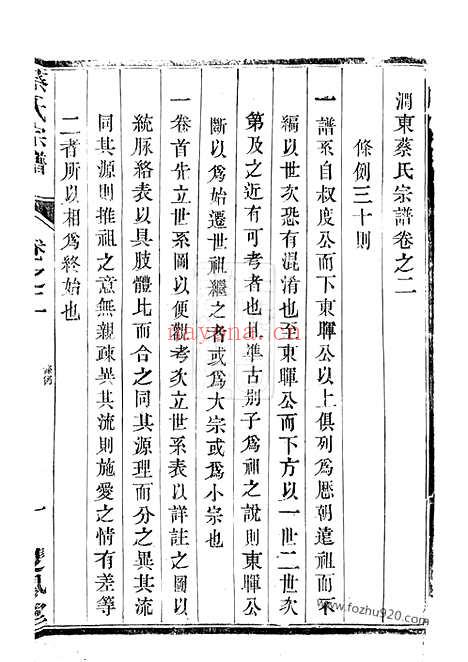 潤東蔡氏宗譜卷之二
條例三十則
一譜系自叔度公而下東暉公以上俱列爲歷朝遠祖而不
編以世次恐有混淆也至東暉公而下方以一世二世次
第及之近有可考者也且準古別子爲祖之說則東暉公
斷以爲始遷世祖繼之者或爲大宗或爲小宗也
一卷首先立世系圖以便觀考次立世系表以詳註之圖以
統脈絡表以具肢體比而合之同其源理而分之異其流
同其源則推祖之意無親疎異其流則施愛之情有差等
二者所以相爲終始也
蔡氏宗譜
卷之二
條例
一
nayona.cn
www.fozhu920.com